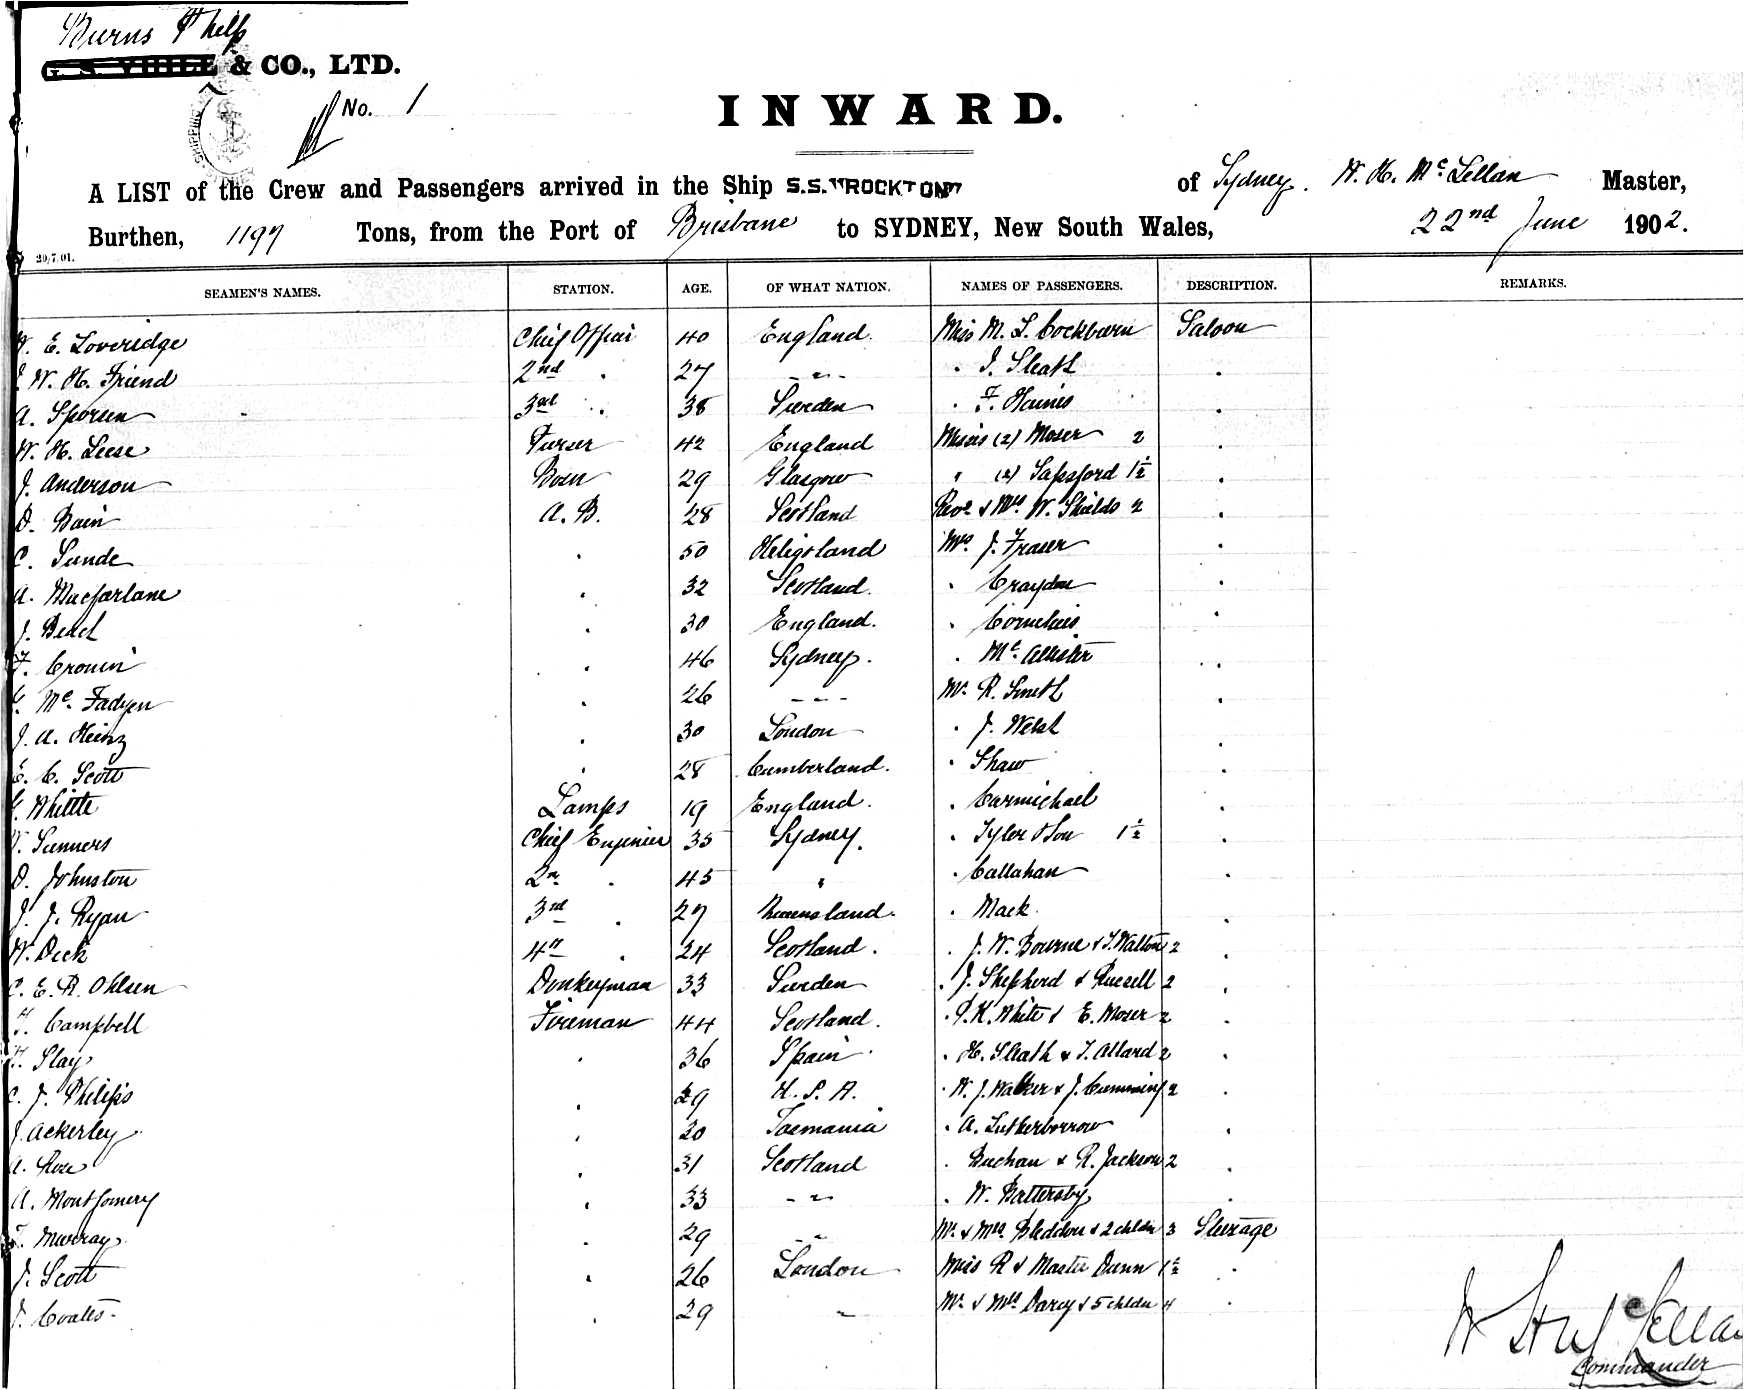 Burns Philp
& CO., LTD.
No. 1
INWARD.
A LIST of the Crew and Passengers arrived in the Ship S.S. "ROCKTON" of Sydney. W. H. McLellan Master,
Burthen, 1197 Tons, from the Port of Brisbane to SYDNEY, New South Wales, 22nd June 1902.
29/7/01.
SEAMEN'S NAMES. STATION. AGE. OF WHAT NATION. NAMES OF PASSENGERS. DESCRIPTION. REMARKS.
W. E. Loveridge Chief Officer 40 England. Miss M. L. Cockburn Saloon
W. H. Friend 2nd " 27 - " - " J. Sleath "
A. Sporsen 3rd " 38 Sweden " F. Haines "
W. H. Leese Purser 42 England Misses (2) Moser 2 "
J. Anderson Bosn 29 Glasgow " (2) Sapsford 1½ "
D. Bain A.B. 28 Scotland Revd & Mrs W. Shields 2 "
C. Sunde " 50 Heligoland Mrs J. Fraser "
A. Macfarlane " 32 Scotland. " Craydon "
J. Beach " 30 England. " Cornelius "
F. Cronin " 46 Sydney. " McAllister "
McFadyen " 26 - " - Mr R. Smith "
J. A. Heinz " 30 London " J. Welsh "
E. C. Scott " 28 Cumberland. " Shaw "
G. Whittle Lamps 19 England. " Carmichael "
Sunners Chief Engineer 35 Sydney. " Tyler & Son 1½ "
D. Johnston 2nd " 45 " " Callahan "
J. J. Ryan 3rd " 27 Queensland. " Mack. "
W. Dick 4th " 24 Scotland. " J. W. Bourne & T. Walton 2 "
C. E. R. Ohlsen Donkeyman 33 Sweden " J. Shepherd & Russell 2 "
T. Campbell Fireman 44 Scotland. " P. K. White & E. Moser 2 "
T. Slay " 36 Spain " H. Sleath & T. Allard 2 "
C. J. Philips " 29 U.S.A. " W. J. Walker & J. Cumming 2 "
J. Ackerley " 20 Tasmania " A. Lutherborrow "
A. Rose " 31 Scotland " Buchan & R. Jackson 2 "
A. Montgomery " 33 - " - " W. Battersby "
T. Murray " 29 - " - Mr & Mrs Bleddon & 2 chldn 3 Steerage
J. Scott " 26 London Miss R & Master Dunn 1½ "
J. Coatts " 29 " Mr & Mrs Darcy & 5 chldn 4 "
W H McLellan
Commander